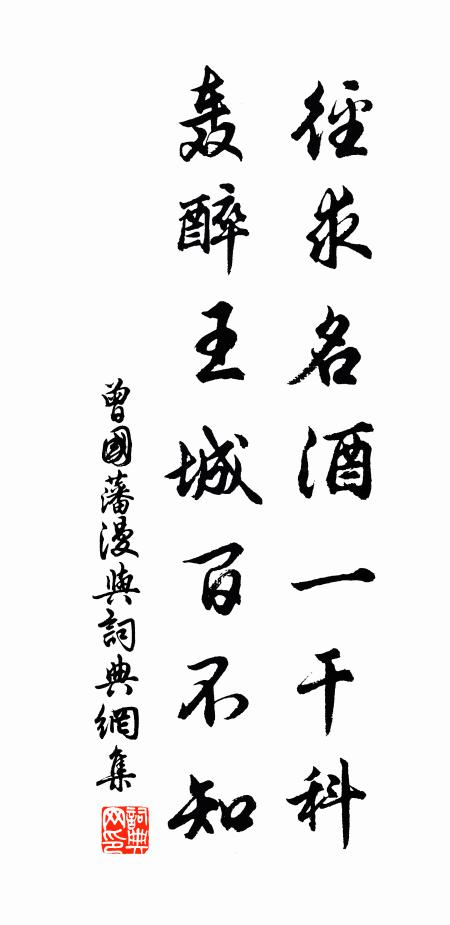 徑求名酒一千科
轰醉王城百不知
曾國藩漫與詞典網集
詞典
网印